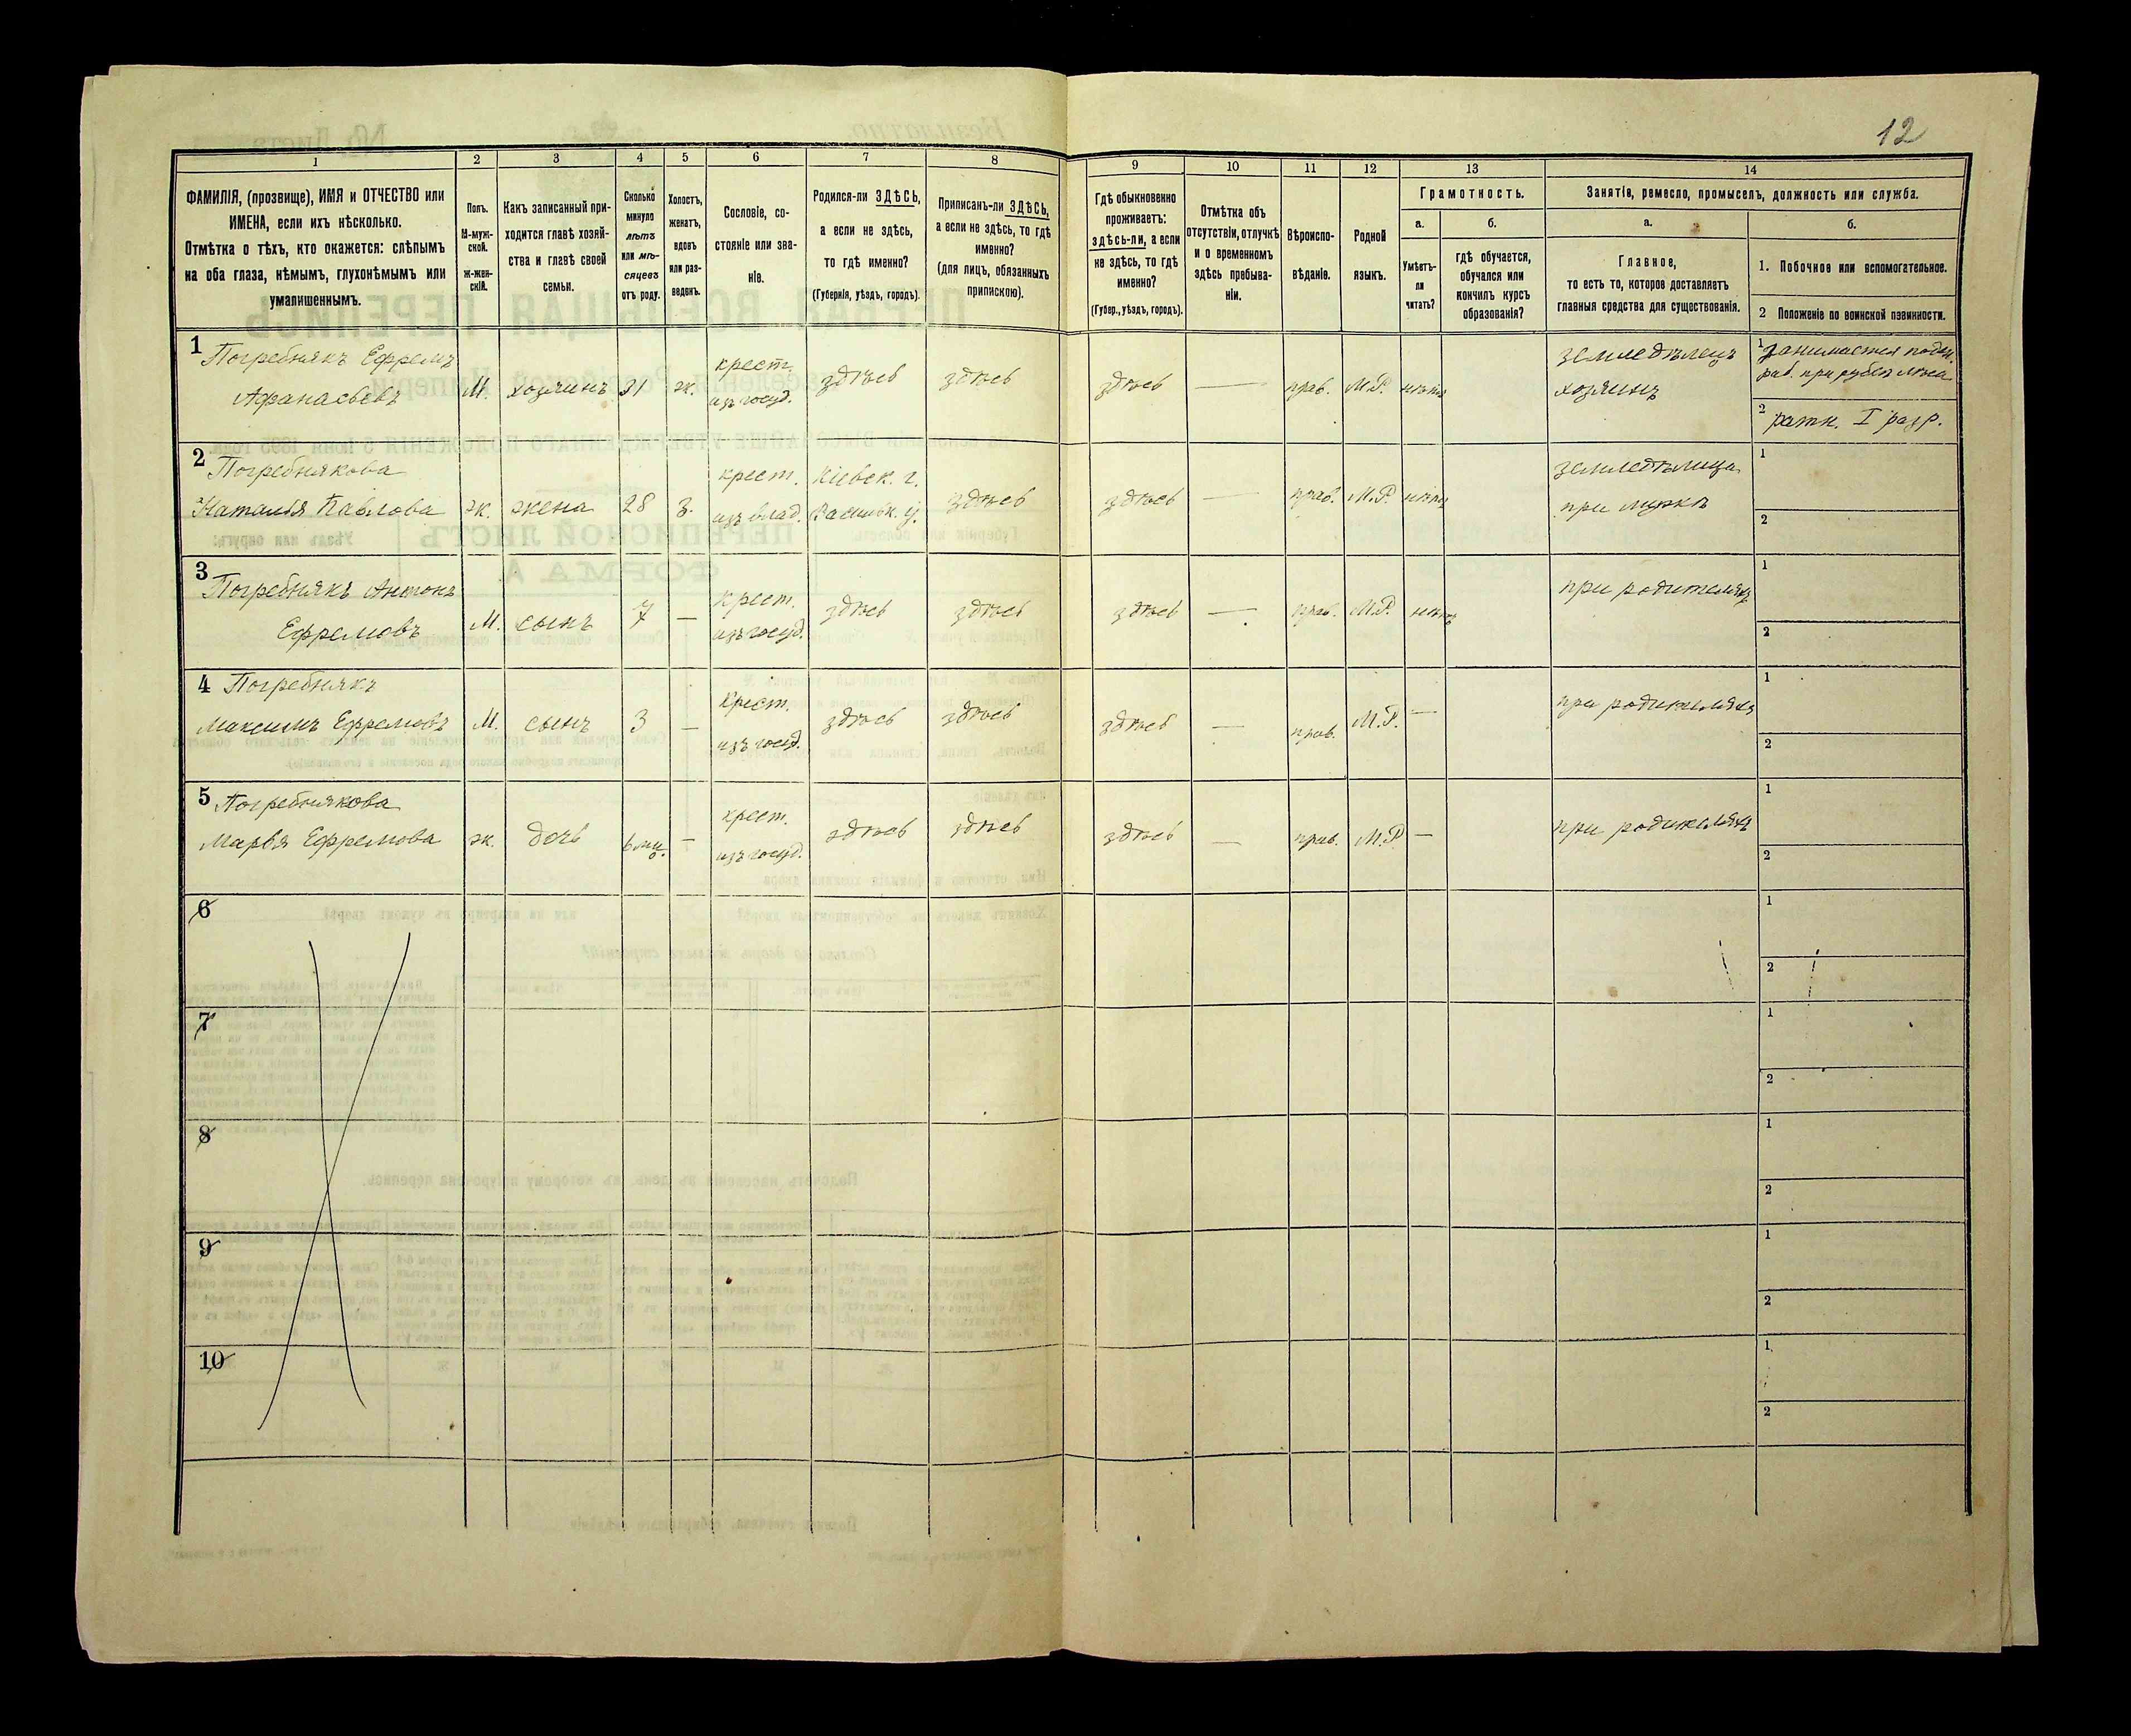 12
1 2 3 4 5 6 7 8 9 10 11 12 13 14
ФАМИЛІЯ, (прозвище), ИМЯ и ОТЧЕСТВО или
ИМЕНА, если ихъ нѣсколько.
Отмѣтка о тѣхъ, кто окажется: слѣпымъ
на оба глаза, нѣмымъ, глухонѣмымъ или
умалишеннымъ.
Полъ.
М-муж-
ской.
Ж-жен-
скій.
Какъ записанный при-
ходится главѣ хозяй-
ства и главѣ своей
семьи.
Сколько
минуло
лѣтъ
или мѣ-
сяцевъ
отъ роду.
Холостъ,
женатъ,
вдовъ
или раз-
веденъ.
Сословіе, со-
стояніе или зва-
ніе.
Родился-ли ЗДѢСЬ,
а если не здѣсь,
то гдѣ именно?
(Губернія, уѣздъ, городъ).
Приписанъ-ли ЗДѢСЬ,
а если не здѣсь, то гдѣ
именно?
(для лицъ, обязанныхъ
припискою).
Гдѣ обыкновенно
проживаетъ:
здѣсь-ли, а если
не здѣсь, то гдѣ
именно?
(Губер., уѣздъ, городъ).
Отмѣтка объ
отсутствіи, отлучкѣ
и о временномъ
здѣсь пребыва-
ніи.
Вѣроиспо-
вѣданіе.
Родной
языкъ.
Грамотность.
а.
Умѣетъ-
ли
читать?
б.
гдѣ обучается,
обучался или
кончилъ курсъ
образованія?
Занятіе, ремесло, промыселъ, должность или служба.
а.
Главное,
то есть то, которое доставляетъ
главныя средства для существованія.
б.
1. Побочное или вспомогательное.
2 Положеніе по воинской повинности.
1 Погребнякъ Ефремъ
Афанасьевъ
М. хозяинъ 31 ж.
крест.
изъ госуд.
здѣсь здѣсь здѣсь — прав. М.Р. нѣтъ
земледѣлецъ
хозяинъ
1 занимается поден.
раб. при рубкѣ лѣса
2 ратн. I разр.
2 Погребнякова
Наталья Павлова
ж. жена 28 з.
крест.
изъ влад.
Кіевск. г.
Васильк. у.
здѣсь здѣсь — прав. М.Р. нѣтъ
земледѣлица
при мужѣ
1
2
3 Погребнякъ Антонъ
Ефремовъ
М. сынъ 7 —
крест.
изъ госуд.
здѣсь здѣсь здѣсь — прав. М.Р. нѣтъ
при родителяхъ
1
2
4 Погребнякъ
Максимъ Ефремовъ
М. сынъ 3 —
крест.
изъ госуд.
здѣсь здѣсь здѣсь — прав. М.Р. —
при родителяхъ
1
2
5 Погребнякова
Марья Ефремова
ж. дочь 6 мц. —
крест.
изъ госуд.
здѣсь здѣсь здѣсь — прав. М.Р. —
при родителяхъ
1
2
6
1
2
7
1
2
8
1
2
9
1
2
10
1
2